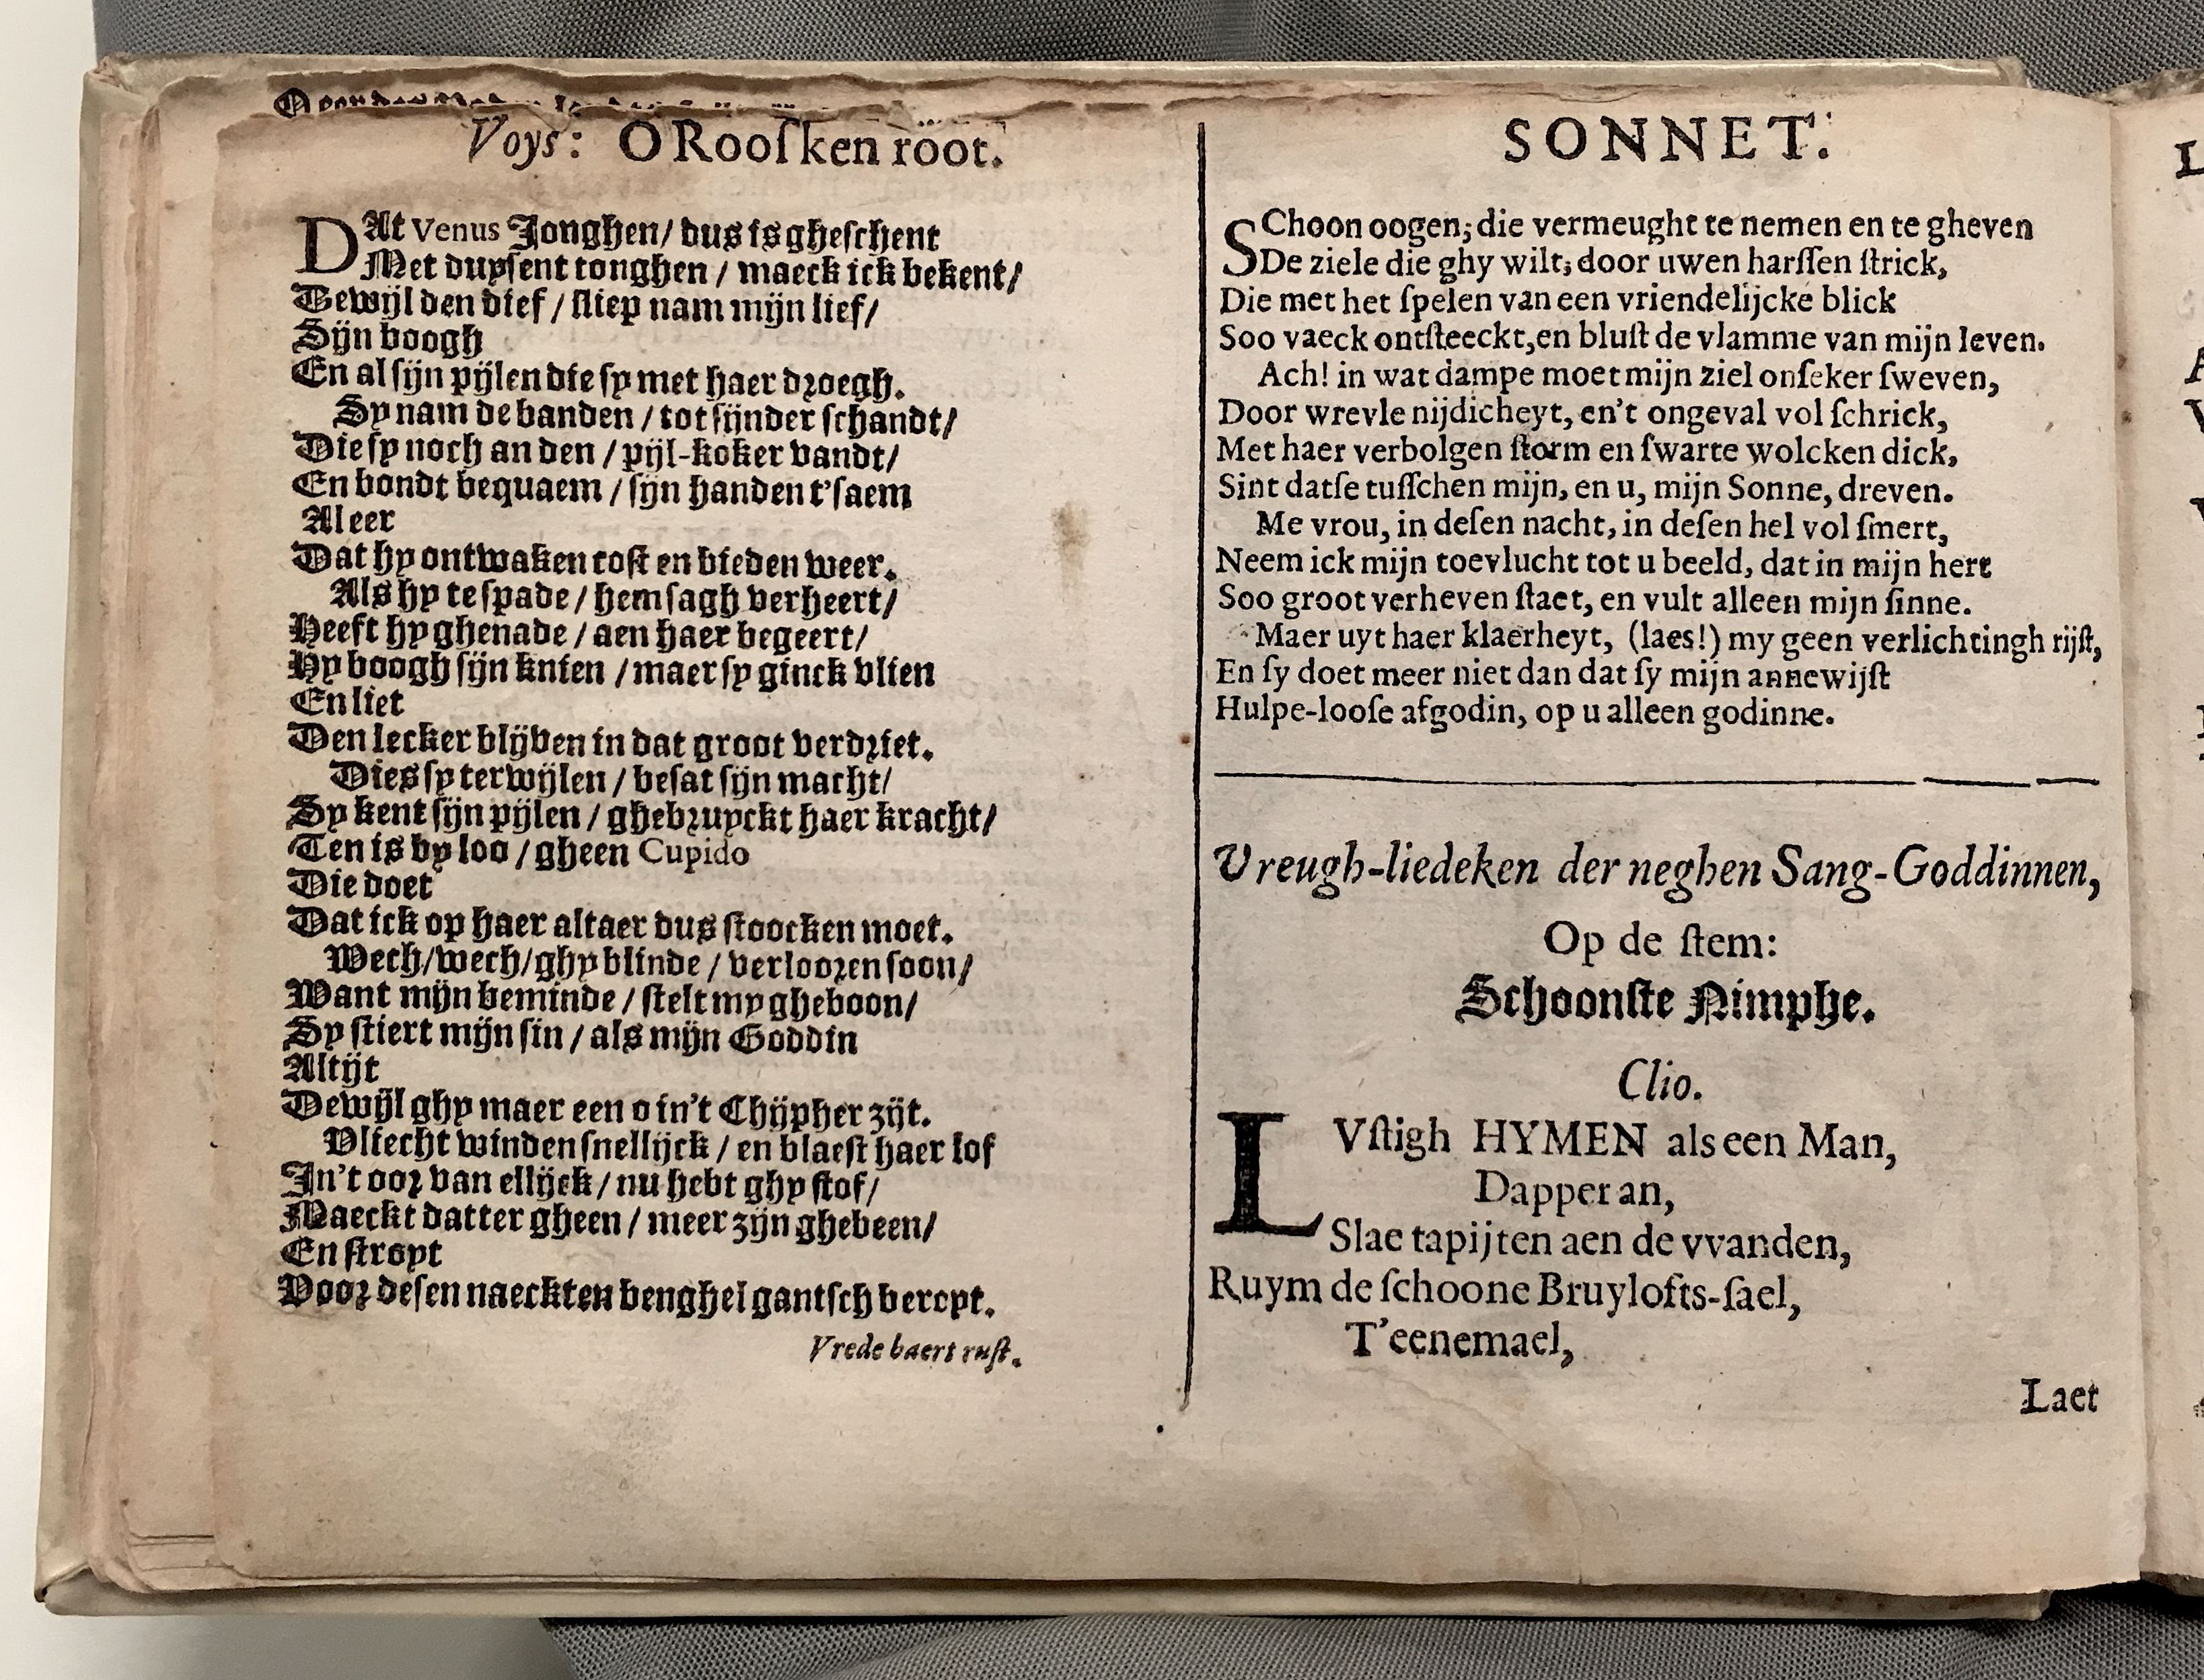 Voys: O Rooſken root.
DAt Venus Jonghen/ dus is gheſchent
Met duyſent tonghen / maeck ick bekent/
Tewijl den dief / ſliep nam mijn lief/
Sijn boogh
En al ſijn pijlen die ſy met haer droegh.
Sy nam de banden / tot ſijnder ſchandt/
Die ſy noch an den / pijl-koker vandt/
En bondt bequaem / ſijn handen t'ſaem
Al eer
Dat hy ontwaken coſt en bieden weer.
Als hy te ſpade / hem ſagh verheert/
Heeft hy ghenade / aen haer begeert/
Hy boogh ſijn knien / maer ſy ginck vlien
En liet
Den lecker blijven in dat groot verdriet.
Dies ſy terwijlen / beſat ſijn macht/
Sy kent ſijn pijlen / ghebruyckt haer kracht/
Ten is by loo / gheen Cupido
Die doet
Dat ick op haer altaer dus ſtoocken moet.
Wech/wech/ghy blinde / verlooren ſoon/
Want mijn beminde / ſtelt my gheboon/
Sy ſtiert mijn ſin / als mijn Goddin
Altijt
Dewijl ghy maer een o in't Chijpher zijt.
Vliecht winden ſnellijck / en blaeſt haer lof
In't oor van ellijck / nu hebt ghy ſtof/
Maeckt datter gheen / meer zijn ghebeen/
En ſtropt
Voor deſen naeckten benghel gantſch beropt.
Vrede baert ruſt.
SONNET.
SChoon oogen; die vermeught te nemen en te gheven
De ziele die ghy wilt; door uwen harſſen ſtrick,
Die met het ſpelen van een vriendelijcke blick
Soo vaeck ontſteeckt, en bluſt de vlamme van mijn leven.
Ach! in wat dampe moet mijn ziel onſeker ſweven,
Door wrevle nijdicheyt, en't ongeval vol ſchrick,
Met haer verbolgen ſtorm en ſwarte wolcken dick,
Sint datſe tuſſchen mijn, en u, mijn Sonne, dreven.
Me vrou, in deſen nacht, in deſen hel vol ſmert,
Neem ick mijn toevlucht tot u beeld, dat in mijn hert
Soo groot verheven ſtaet, en vult alleen mijn ſinne.
Maer uyt haer klaerheyt, (laes!) my geen verlichtingh rijſt,
En ſy doet meer niet dan dat ſy mijn annewijſt
Hulpe-looſe afgodin, op u alleen godinne.
Vreugh-liedeken der neghen Sang-Goddinnen,
Op de ſtem:
Schoonſte Nimphe.
Clio.
LVſtigh HYMEN als een Man,
Dapper an,
Slae tapijten aen de vvanden,
Ruym de ſchoone Bruylofts-ſael,
T'eenemael,
Laet